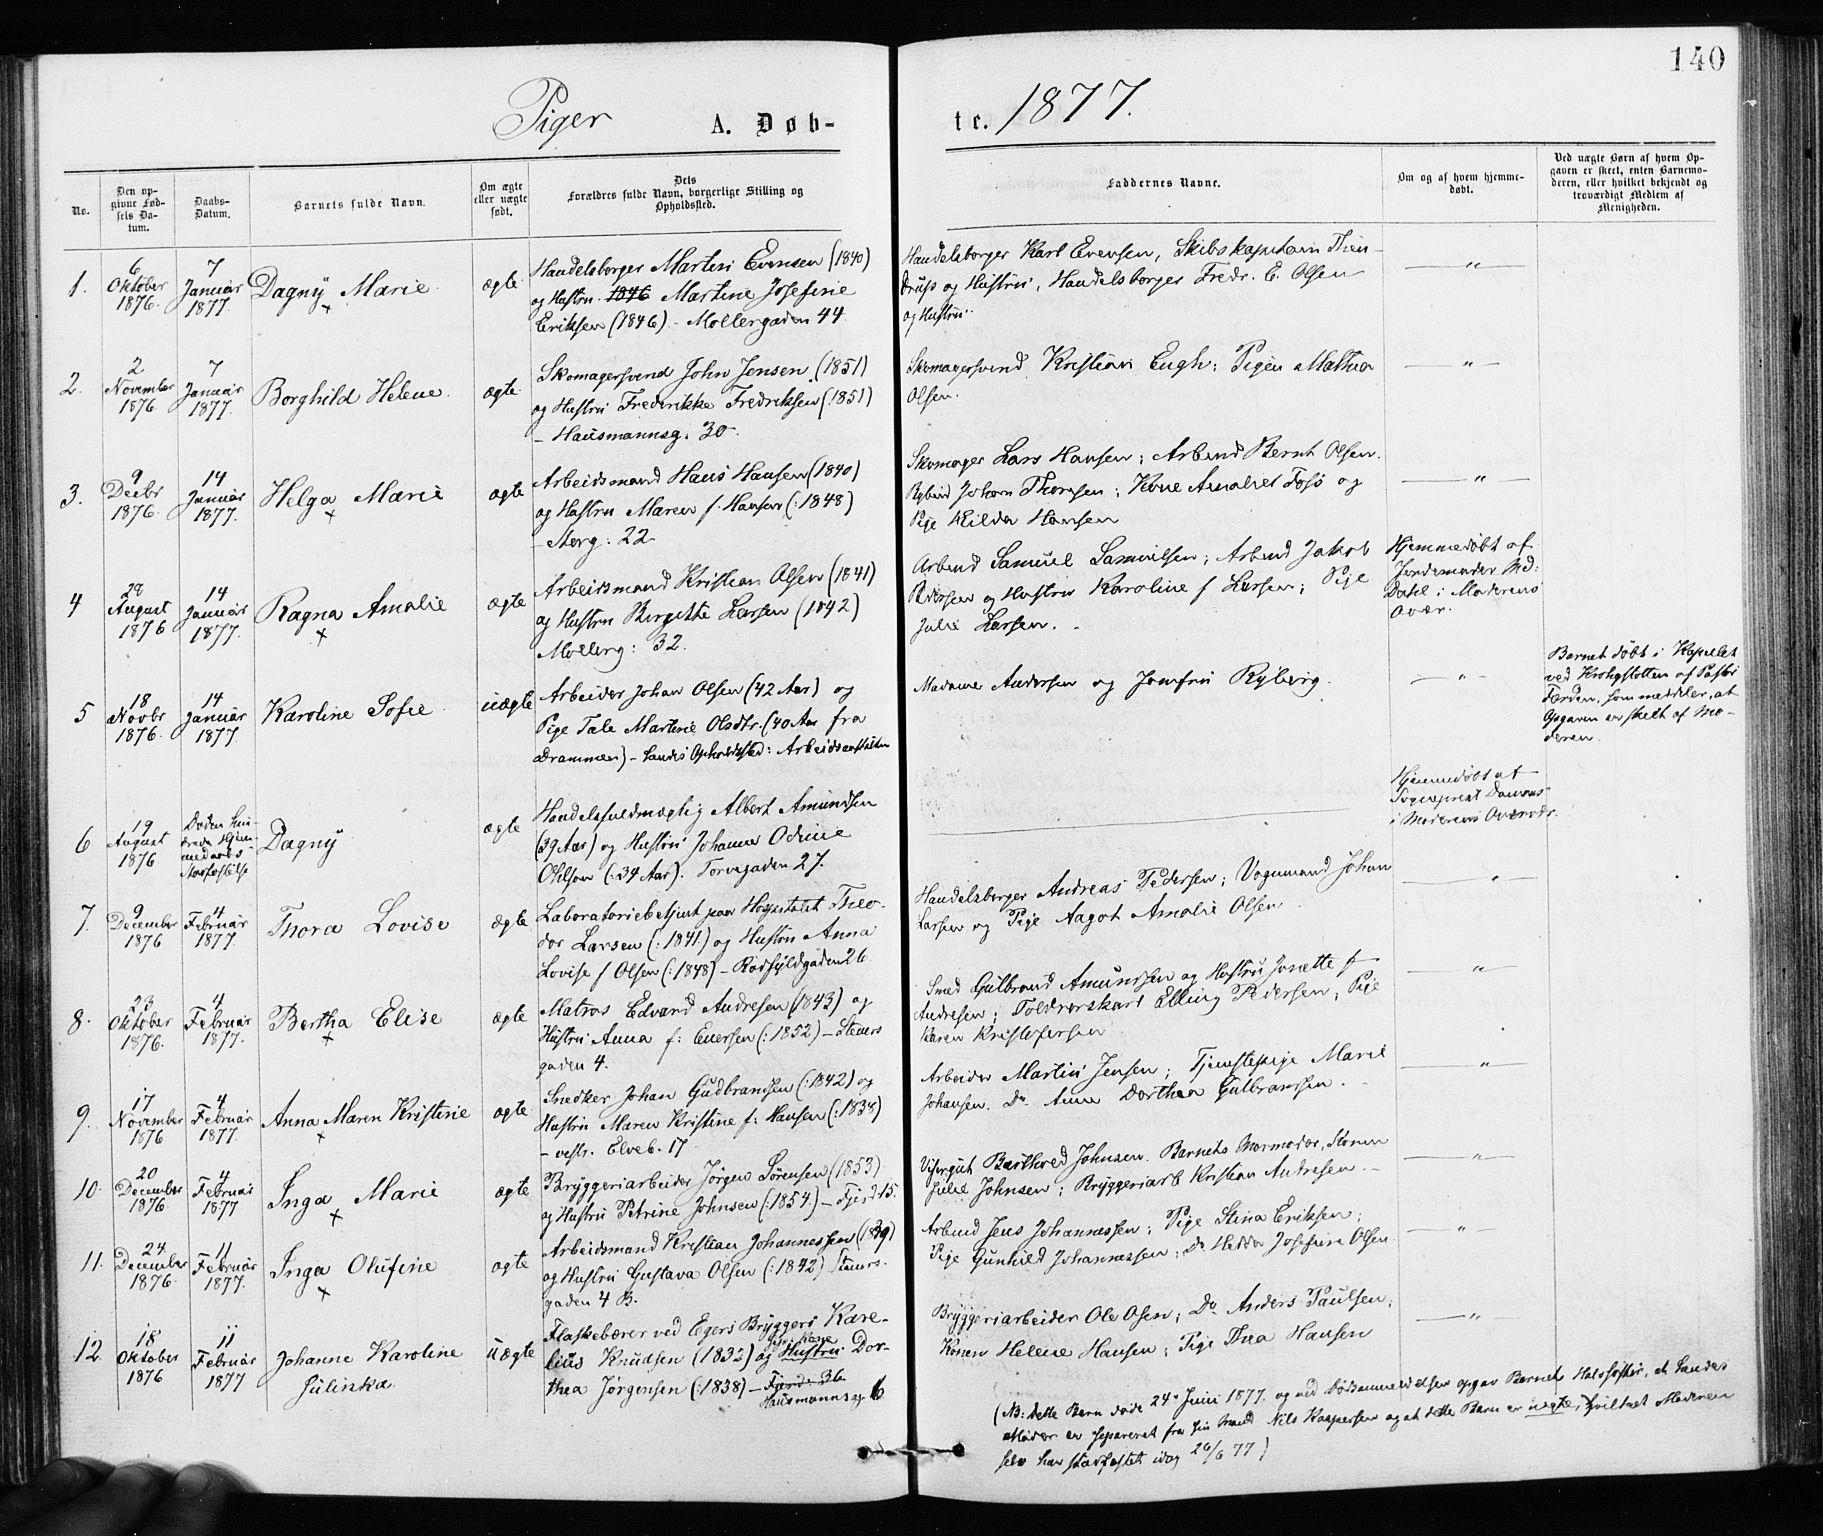 140
Piger A. Døb-
te. 1877.
No.
Den op-
givne Fød-
sels Da-
tum.
Daabs-
Datum.
Barnets fulde Navn.
Om ægte
eller uægte
født.
Dets
Forældres fulde Navn, borgerlige Stilling og
Opholdssted.
Faddernes Navne.
Om og af hvem hjemme-
døbt.
Ved uægte Børn af hvem Op-
gaven er skeet, enten Barnemo-
deren, eller hvilket bekjendt og
troværdigt Medlem af
Menigheden.
1.
6
Oktober
1876.
7
Januar
1877.
Dagny Marie
ægte
Handelsborger Martin Evensen (1840)
og Hustru 1846 Martine Josefine
Eriksen (1846) - Møllergaden 44
Handelsborger Karl Evensen, Skibskaptain Thin-
drup og Hustru, Handelsborger Fredr. E. Olsen
og Hustru.
- " -
2.
2
November
1876.
7
Januar
1877.
Borghild Helene.
ægte
Skomagersvend John Jensen (1851)
og Hustru Frederikke Fredriksen (1851)
- Hausmannsg. 30.
Skomagersvend Kristian Engh; Pigen Mathea
Olsen.
- " -
3.
9
Decbr
1876.
14
Januar
1877.
Helga Marie
ægte
Arbeidsmand Hans Hansen (1840)
og Hustru Maren f. Hansen (:1848)
- Storg: 22
Skomager Lars Hansen; Arbmd Bernt Olsen.
Johan Thoresen; Kone Amalie Fosø og
Pige Hilda Hansen
- " -
4
28
August
1876
14
Januar
1877.
Ragna Amalie
ægte
Arbeidsmand Kristian Olsen (1841)
og Hustru Birgitte Larsen (1842)
Møllerg: 32.
Arbmd Samuel Samuelsen; Arbmd Jakob
Pedersen og Hustru Karoline f Larsen; Pige
Julie Larsen.
Hjemmedøbt af
Jordemoder Md:
Dahl i Moderens
Overvær.
5
18
Novbr
1876.
14
Januar
1877.
Karoline Sofie
uægte
Arbeider Johan Olsen (42 Aar) og
Pige Tale Martine Olsdtr. (40 Aar fra
Drammen) - Opholdssted: Arbeidsanstalten
Madame Andersen og Jomfru Ryberg.
- " -
Barnet døbt i Kapellet
ved Krohgstøtten af Pastor
Færden, som meddeler, at
Opgaven er skeet af Mo-
deren.
6
19
August
1876
Døden hin-
drede Hjem-
medaabs
Stadfæstelse
Dagny
ægte
Handelsfuldmægtig Albert Amundsen
(39 Aar) og Hustru Johanne Odine
Ohlson (:34 Aar). Torvegaden 27.
Hjemmedøbt af
Sogneprest
i Moderens Overvær.
7.
9
December
1876
4
Februar
1877.
Thora Lovise
ægte
Laboratoriebetjent paa Hospitalet Theo-
dor Larsen (:1841.) og Hustru Anna
Lovise f Olsen (:1848) - Rødfyldgaden 26
Handelsborger Andreas Pedersen; Vognmand Johan
Larsen og Pige Aagot Amalie Olsen
- " -
8.
23
Oktober
1876.
4
Februar
1877.
Bertha Elise
ægte
Matros Edvard Andresen (1843) og
Hustru Anna f: Enersen (:1852) - Steners
gaden 4.
Smed Gulbrand Amundsen og Hustru Jonette f
Andresen; Toldrorskarl Elling Pedersen; Pige
Karen Kristofersen
- " -
9.
17
November
1876
4
Februar
1877.
Anna Maren Kristine
ægte
Snedker Johan Gudbrandsen (:1842) og
Hustru Maren Kristine f: Hansen (:1838)
- vestr. Elveb. 17
Arbeider Martin Jensen; Tjenestepige Marie
Johansen. Do Anne Dorthea Gulbransen.
- " -
10.
20
December
1876.
4
Februar
1877
Inga Marie
ægte
Bryggeriarbeider Jørgen Sørensen (1853)
og Hustru Petrine Johnsen (:1854.) - Fjerd. 15.
Visergut Barthold Johnsen. Barnets Mormoder, Konen
Julie Johnsen; Bryggeriarb Kristian Andresen.
- " -
11.
24
December
1876.
11
Februar
1877.
Inga Olufine
ægte
Arbeidsmand Kristian Johannessen (1839)
og Hustru Gustava Olsen (:1842) Steners.
gaden 4 B.
Arbmd Jens Johannessen; Pige Stina Eriksen;
Pige Gunhild Johannessen; Do Hedda Josefine Olsen
- " -
12
18
Oktober
1876
11
Februar
1877
Johanne Karoline
Juliska
uægte
Flaskebærer ved Egers Bryggeri Kare-
lius Knudsen (1832) og Hustru Dor-
thea Jørgensen (:1838) - Fjerd: 36
Hausmannsg 6
Bryggeriarbeider Ole Olsen; Do Anders Paulsen;
Konen Helene Hansen; Pige Thea Hansen
- " -
(NB: Dette Barn døde 24de Juni 1877. og ved Dødsanmeldelsen opgav Barnets Halvsøster, at
Moder er separeret fra sin Mand Nils Kaspersen og at dette Barn er uægte, hvilket Moderen
selv har stadfæstet idag 26/6 77)